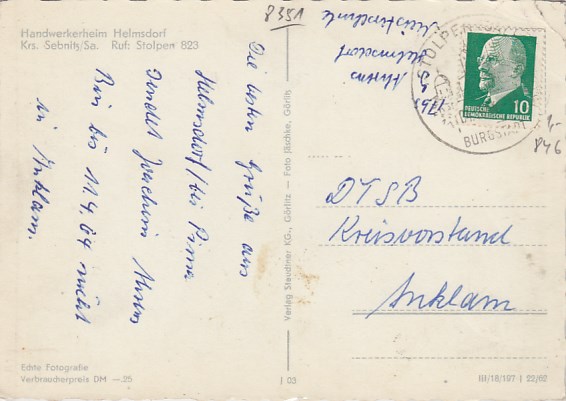 Handwerkerheim Helmsdorf
Krs. Sebnitz/Sa. Ruf: Stolpen 823
8351
Die ersten Grüße aus
Helmsdorf / bei Pirna
sendet Joachim Ahrens
Bin bis 11.4.64 nicht
in Anklam.
Echte Fotografie
Verbraucherpreis DM —.25
Verlag Staudtner KG., Görlitz — Foto Jäschke, Görlitz
I 03
Ahrens
Helmsdorf
STOLPEN
BURGSTADT
10
DEUTSCHE
DEMOKRATISCHE REPUBLIK
1,-
846
DTSB
Kreisvorstand
Anklam
III/18/197 | 22/62